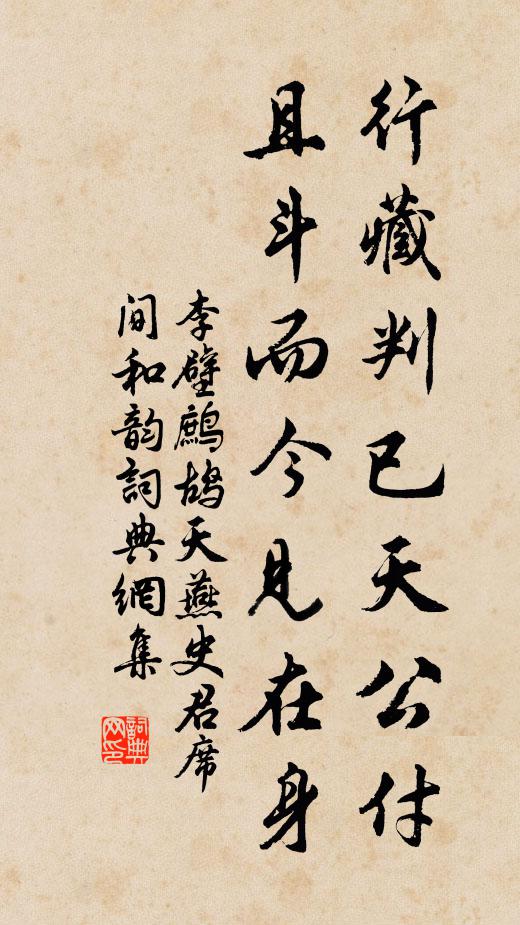 行藏判已天公付
且斗而今見在身
李壁鷓鴣天燕史君席
間和韵詞典網集
詞典网印